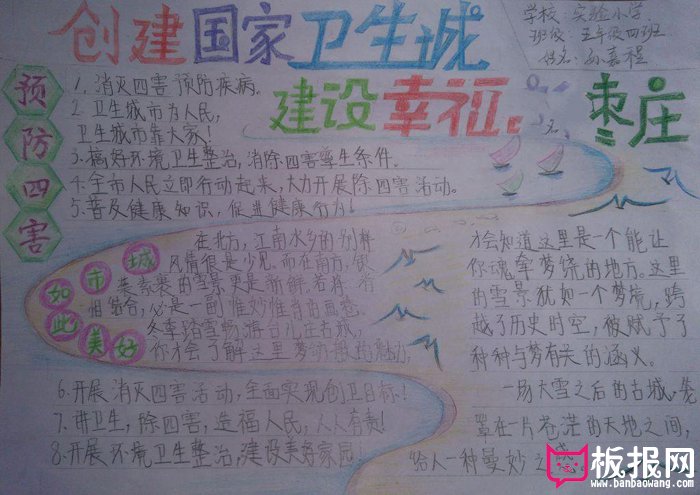 创建国家卫生城
学校:实验小学
班级:五年级四班
姓名:孙嘉程
建设幸福
枣庄
预防四害
1.消灭四害 预防疾病。
2.卫生城市为人民,
卫生城市靠大家!
3.搞好环境卫生整治,消除四害孳生条件。
4.全市人民立即行动起来,大力开展除四害活动。
5.普及健康知识,促进健康行为!
城市如此美好
在北方,江南水乡的别样
风情很是少见。而在南方,银
装素裹的雪景更是新鲜。若将
相结合,必是一副惟妙惟肖的画卷。
冬季踏雪畅游台儿庄古城,
你才会了解这里梦幻般的魅力,
才会知道这里是一个能让
你魂牵梦绕的地方。这里
的雪景犹如一个梦境,跨
越了历史时空,被赋予了
种种与梦有关的涵义。
一场大雪之后的古城,笼
罩在一片苍茫的天地之间,
给人一种曼妙之感
6.开展消灭四害活动,全面实现创卫目标!
7.讲卫生,除四害,造福人民,人人有责!
8.开展环境卫生整治,建设美好家园!
板报网
www.banbaowang.com